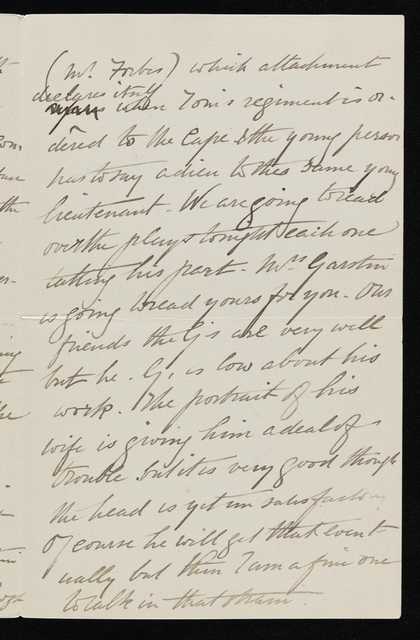 (Mr. Forbes) which attachment
declares itself
when Tom's regiment is or-
dered to the Cape & the young person
has to say adieu to this same young
lieutenant. We are going to read
over the plays tonight each one
taking his part. Mrs Garstin
is going to read yours for you. Our
friends the G's are very well
but he. G, is low about his
work. The portrait of his
wife is giving him a deal of
trouble but it is very good though
the head is yet unsatisfactory
Of course he will get that event-
ually but then I am a fine one
to talk in that strain.